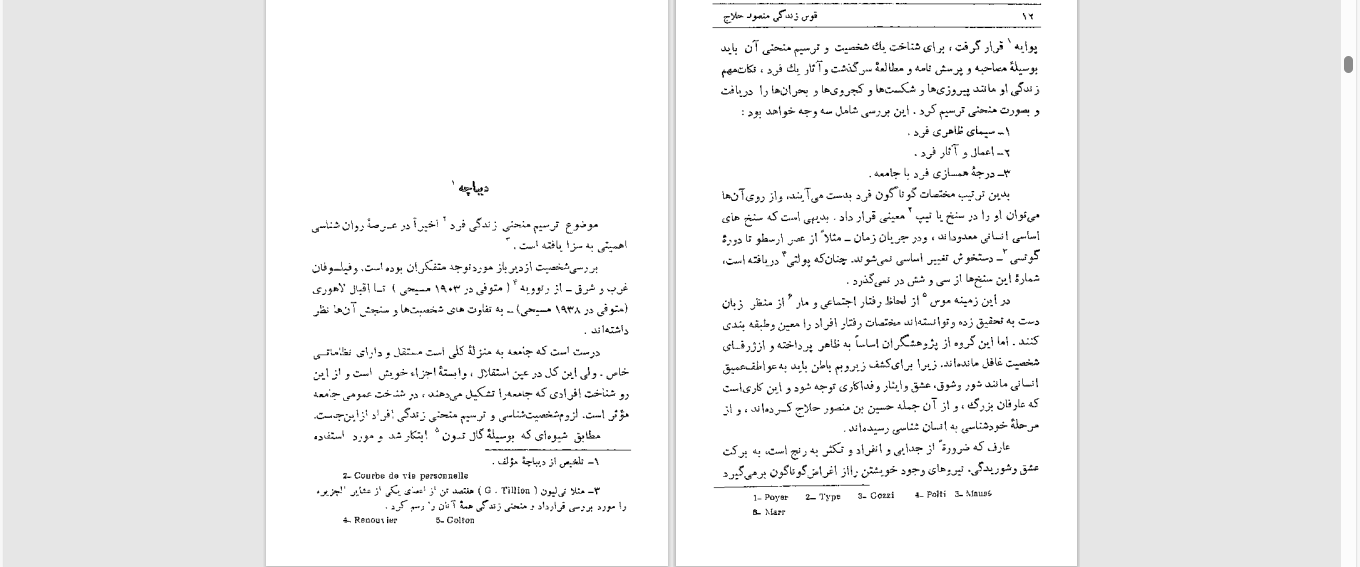 دیباچه ۱
موضوع ترسیم منحنی زندگی فرد ۲ اخیراً در عرصهٔ روان شناسی
اهمیتی به سزا یافته است . ۳
بررسی شخصیت ازدیرباز موردتوجه متفکران بوده است. وفیلسوفان
غرب و شرق ـ از رنوویه ۴ ( متوفی در ۱۹۰۳ مسیحی ) تـا اقبال لاهوری
(متوفی در ۱۹۳۸ مسیحی) ـ به تفاوت های شخصیت‌ها و سنجش آن‌ها نظر
داشته‌اند .
درست است که جامعه به منزلهٔ کلی است مستقل و دارای نظاماتـی
خاص . ولی این کل در عین استقلال ، وابستهٔ اجزاء خویش است و از این
رو شناخت افرادی که جامعه‌را تشکیل می‌دهند ، در شناخت عمومی جامعه
مؤثر است. لزوم‌شخصیت‌شناسی و ترسیم منحنی زندگی افراد ازاین‌جست.
مطابق شیوه‌ای که بوسیلهٔ گال تـون ۵ ابتکار شد و مورد استفاده
۱ـ تلخیص از دیباچهٔ مؤلف .
2- Courbe de vie personnelle
۳ـ مثلا تی‌لیون ( G . Tillion ) هفتصد تن از اعضای یکی از عشایر الجزیره
را مورد بررسی قرارداد و منحنی زندگی همهٔ آنان را رسم کرد .
4- Renouvier 5- Golton
۱۲ قوس زندگی منصور حلاج
پوایه ۱ قرار گرفت ، برای شناخت یك شخصیت و ترسیم منحنی آن باید
بوسیلهٔ مصاحبه و پرسش نامه و مطالعهٔ سرگذشت وآثار یك فرد ، نکات‌مهم
زندگی او مانند پیروزی‌ها و شکست‌ها و کجروی‌ها و بحران‌ها را دریافت
و بصورت منحنی ترسیم کرد . این بررسی شامل سه وجه خواهد بود :
۱ـ سیمای ظاهری فرد .
۲ـ اعمال و آثار فرد .
۳ـ درجهٔ همسازی فرد با جامعه .
بدین ترتیب مختصات گوناگون فرد بدست می‌آیند، واز روی‌آن‌ها
می‌توان او را در سنخ یا تیپ ۲ معینی قرار داد . بدیهی است که سنخ های
اساسی انسانی معدوداند ، ودر جریان زمان ـ مثلاً از عصر ارسطو تا دورهٔ
گوتسی ۳ ـ دستخوش تغییر اساسی نمی‌شوند. چنان‌که پولتی ۴ دریافته است،
شمارهٔ این سنخ‌ها از سی و شش در نمی‌گذرد .
در این زمینه موس ۵ از لحاظ رفتار اجتماعی و مار ۶ از منظر زبان
دست به تحقیق زده وتوانسته‌اند مختصات رفتار افراد را معین وطبقه بندی
کنند . اما این گروه از پژوهشگران اساساً به ظاهر پرداخته و ازژرفـای
شخصیت غافل مانده‌اند. زیرا برای‌کشف زیروبم باطن باید به‌عواطف‌عمیق
انسانی مانند شور وشوق، عشق وایثار وفداکاری توجه شود و این کاری‌است
که عارفان بزرگ ، و از آن جمله حسین بن منصور حلاج کـرده‌اند ، و از
مرحلهٔ خودشناسی به انسان شناسی رسیده‌اند .
عارف که ضرورةً از جدایی و انفراد و تکش به رنج است، به برکت
عشق وشوریدگی، نیروهای وجود خویشتن رااز اغراض‌گوناگون برمی‌گیرد
1- Poyer 2- Type 3- Gozzi 4- Polti 3- Mauss
6- Marr